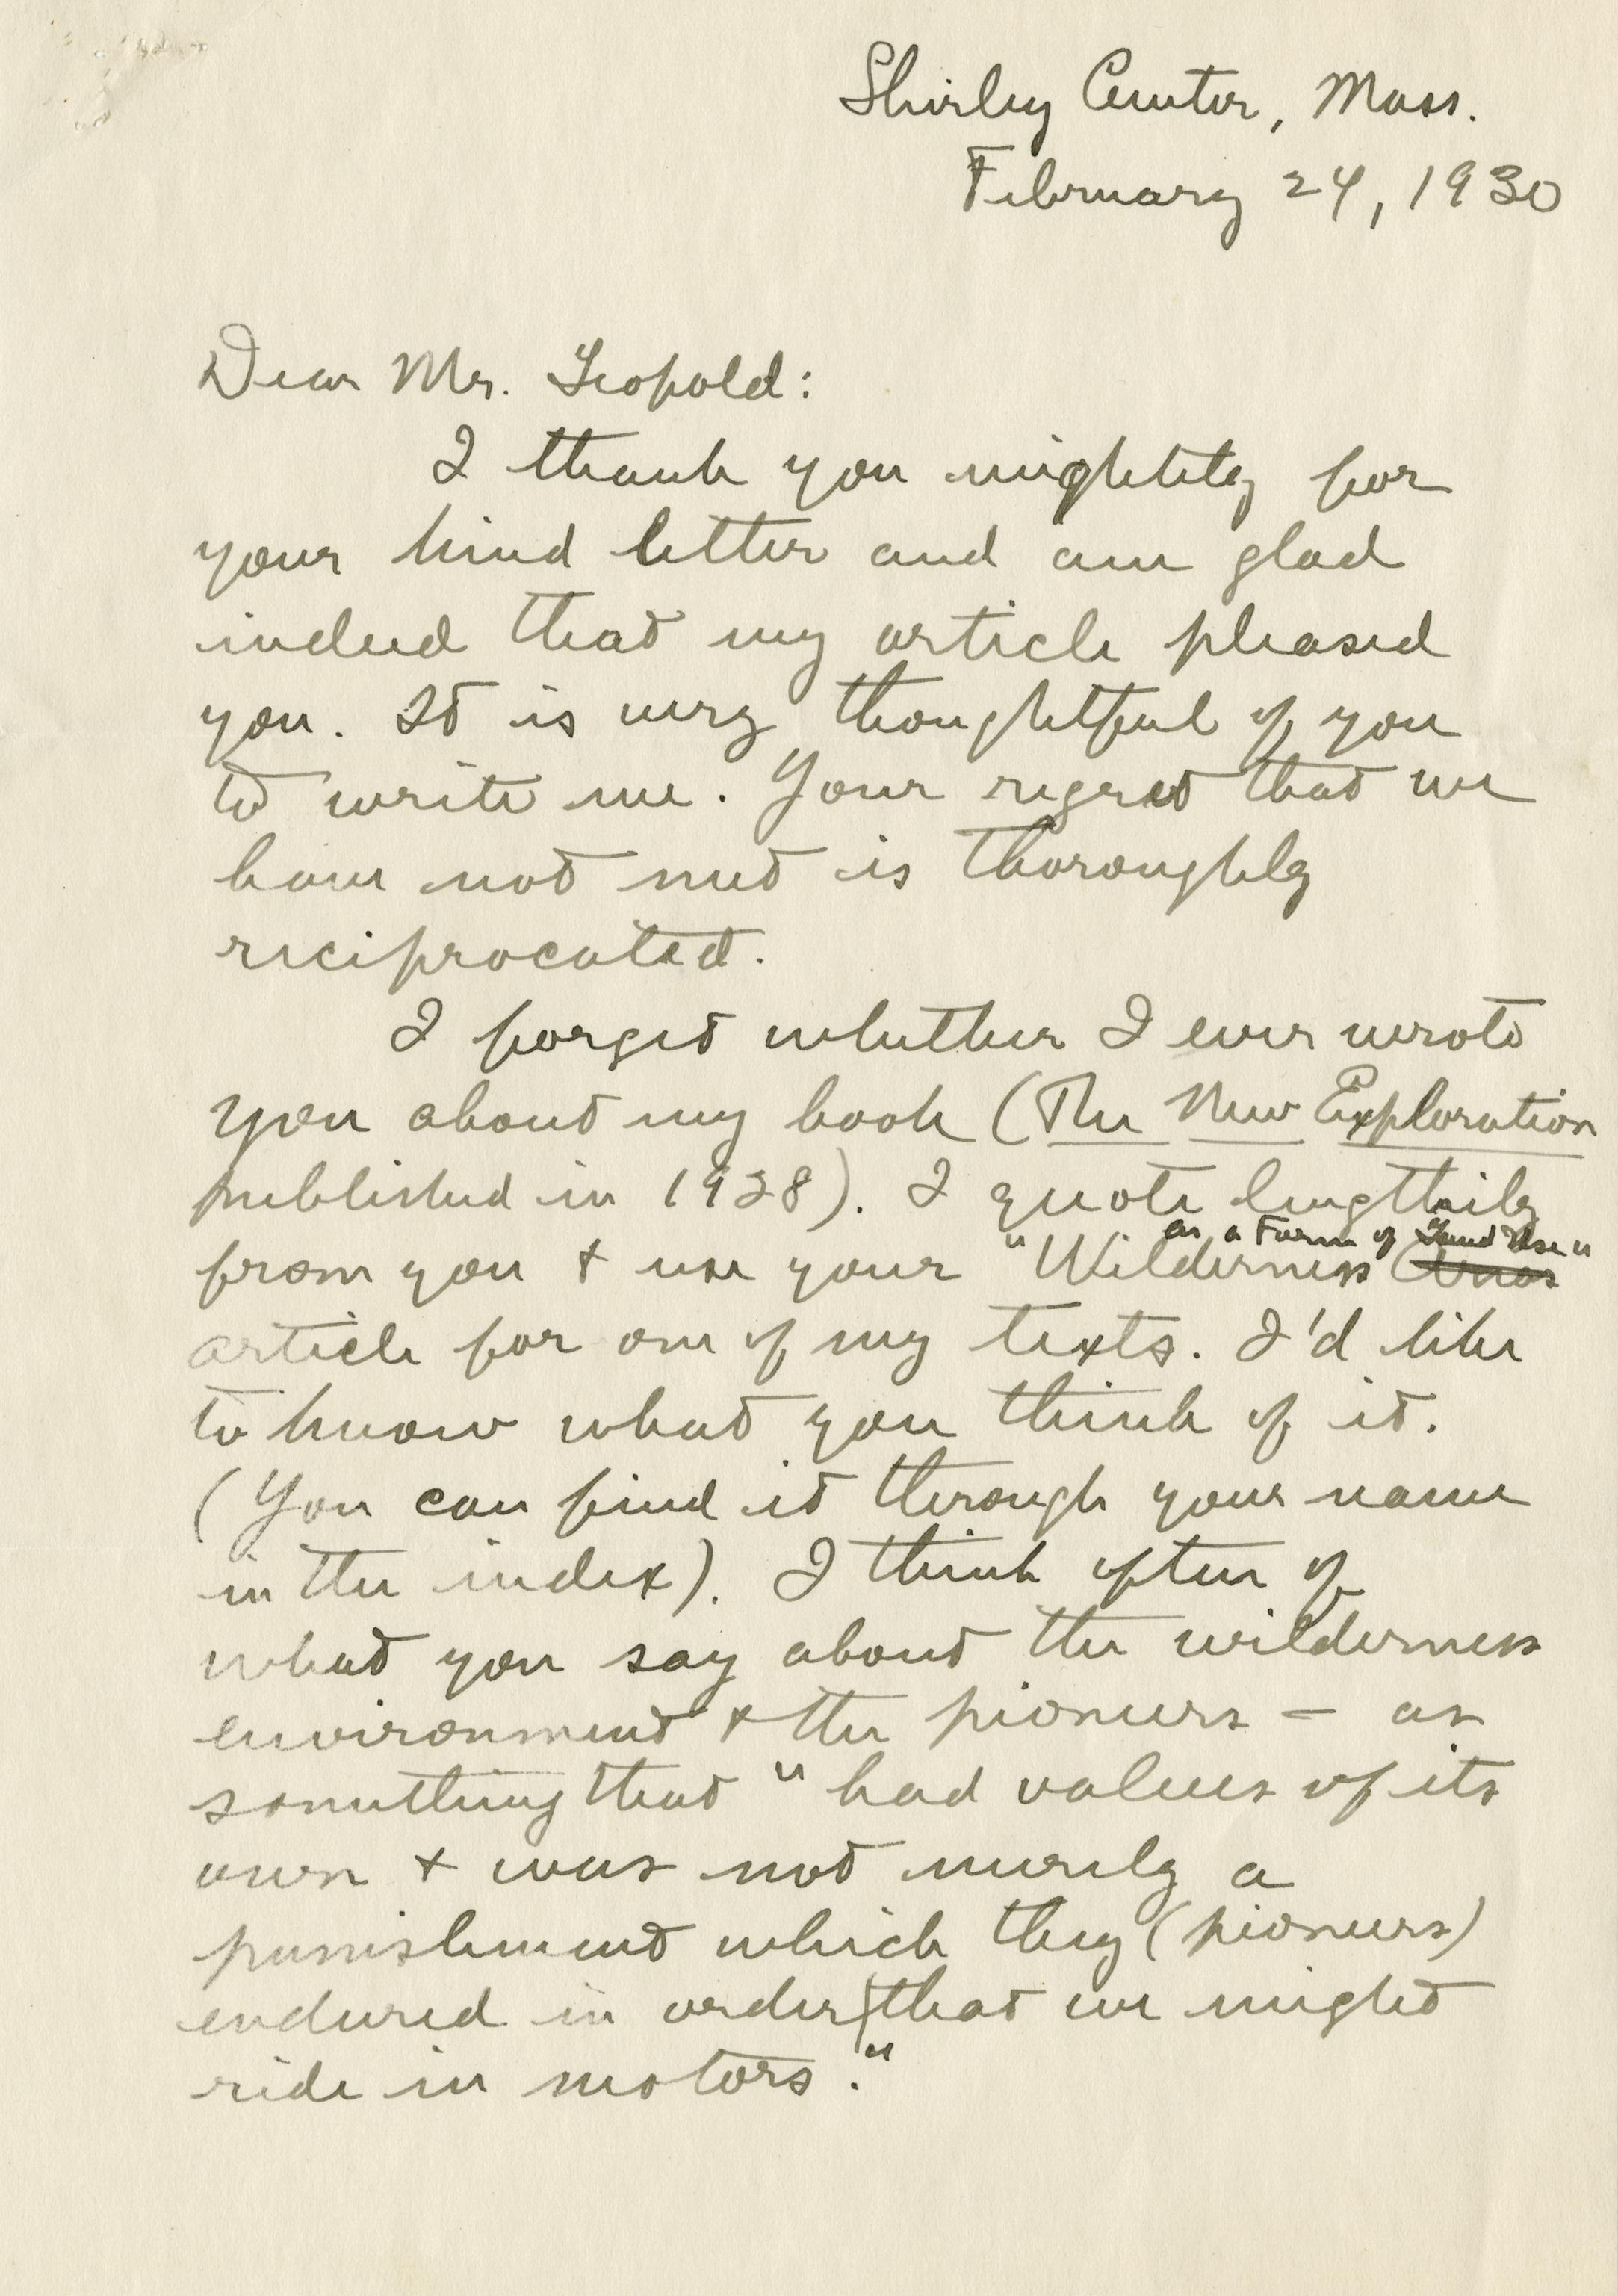 Shirley Center, Mass.
February 24, 1930
Dear Mr. Leopold:
I thank you mightily for
your kind letter and am glad
indeed that my article pleased
you. It is very thoughtful of you
to write me. Your regret that we
have not met is thoroughly
reciprocated.
I forget whether I ever wrote
you about my book (The New Exploration
published in 1928). I quote lengthily
as a Form of Land Use"
from you + use your "Wilderness
article for one of my texts. I'd like
to know what you think of it.
(You can find it through your name
in the index). I think often of
what you say about the wilderness
environment + the pioneers – as
something that "had values of its
own + was not merely a
punishment which they (pioneers)
endured in order that we might
ride in motors."